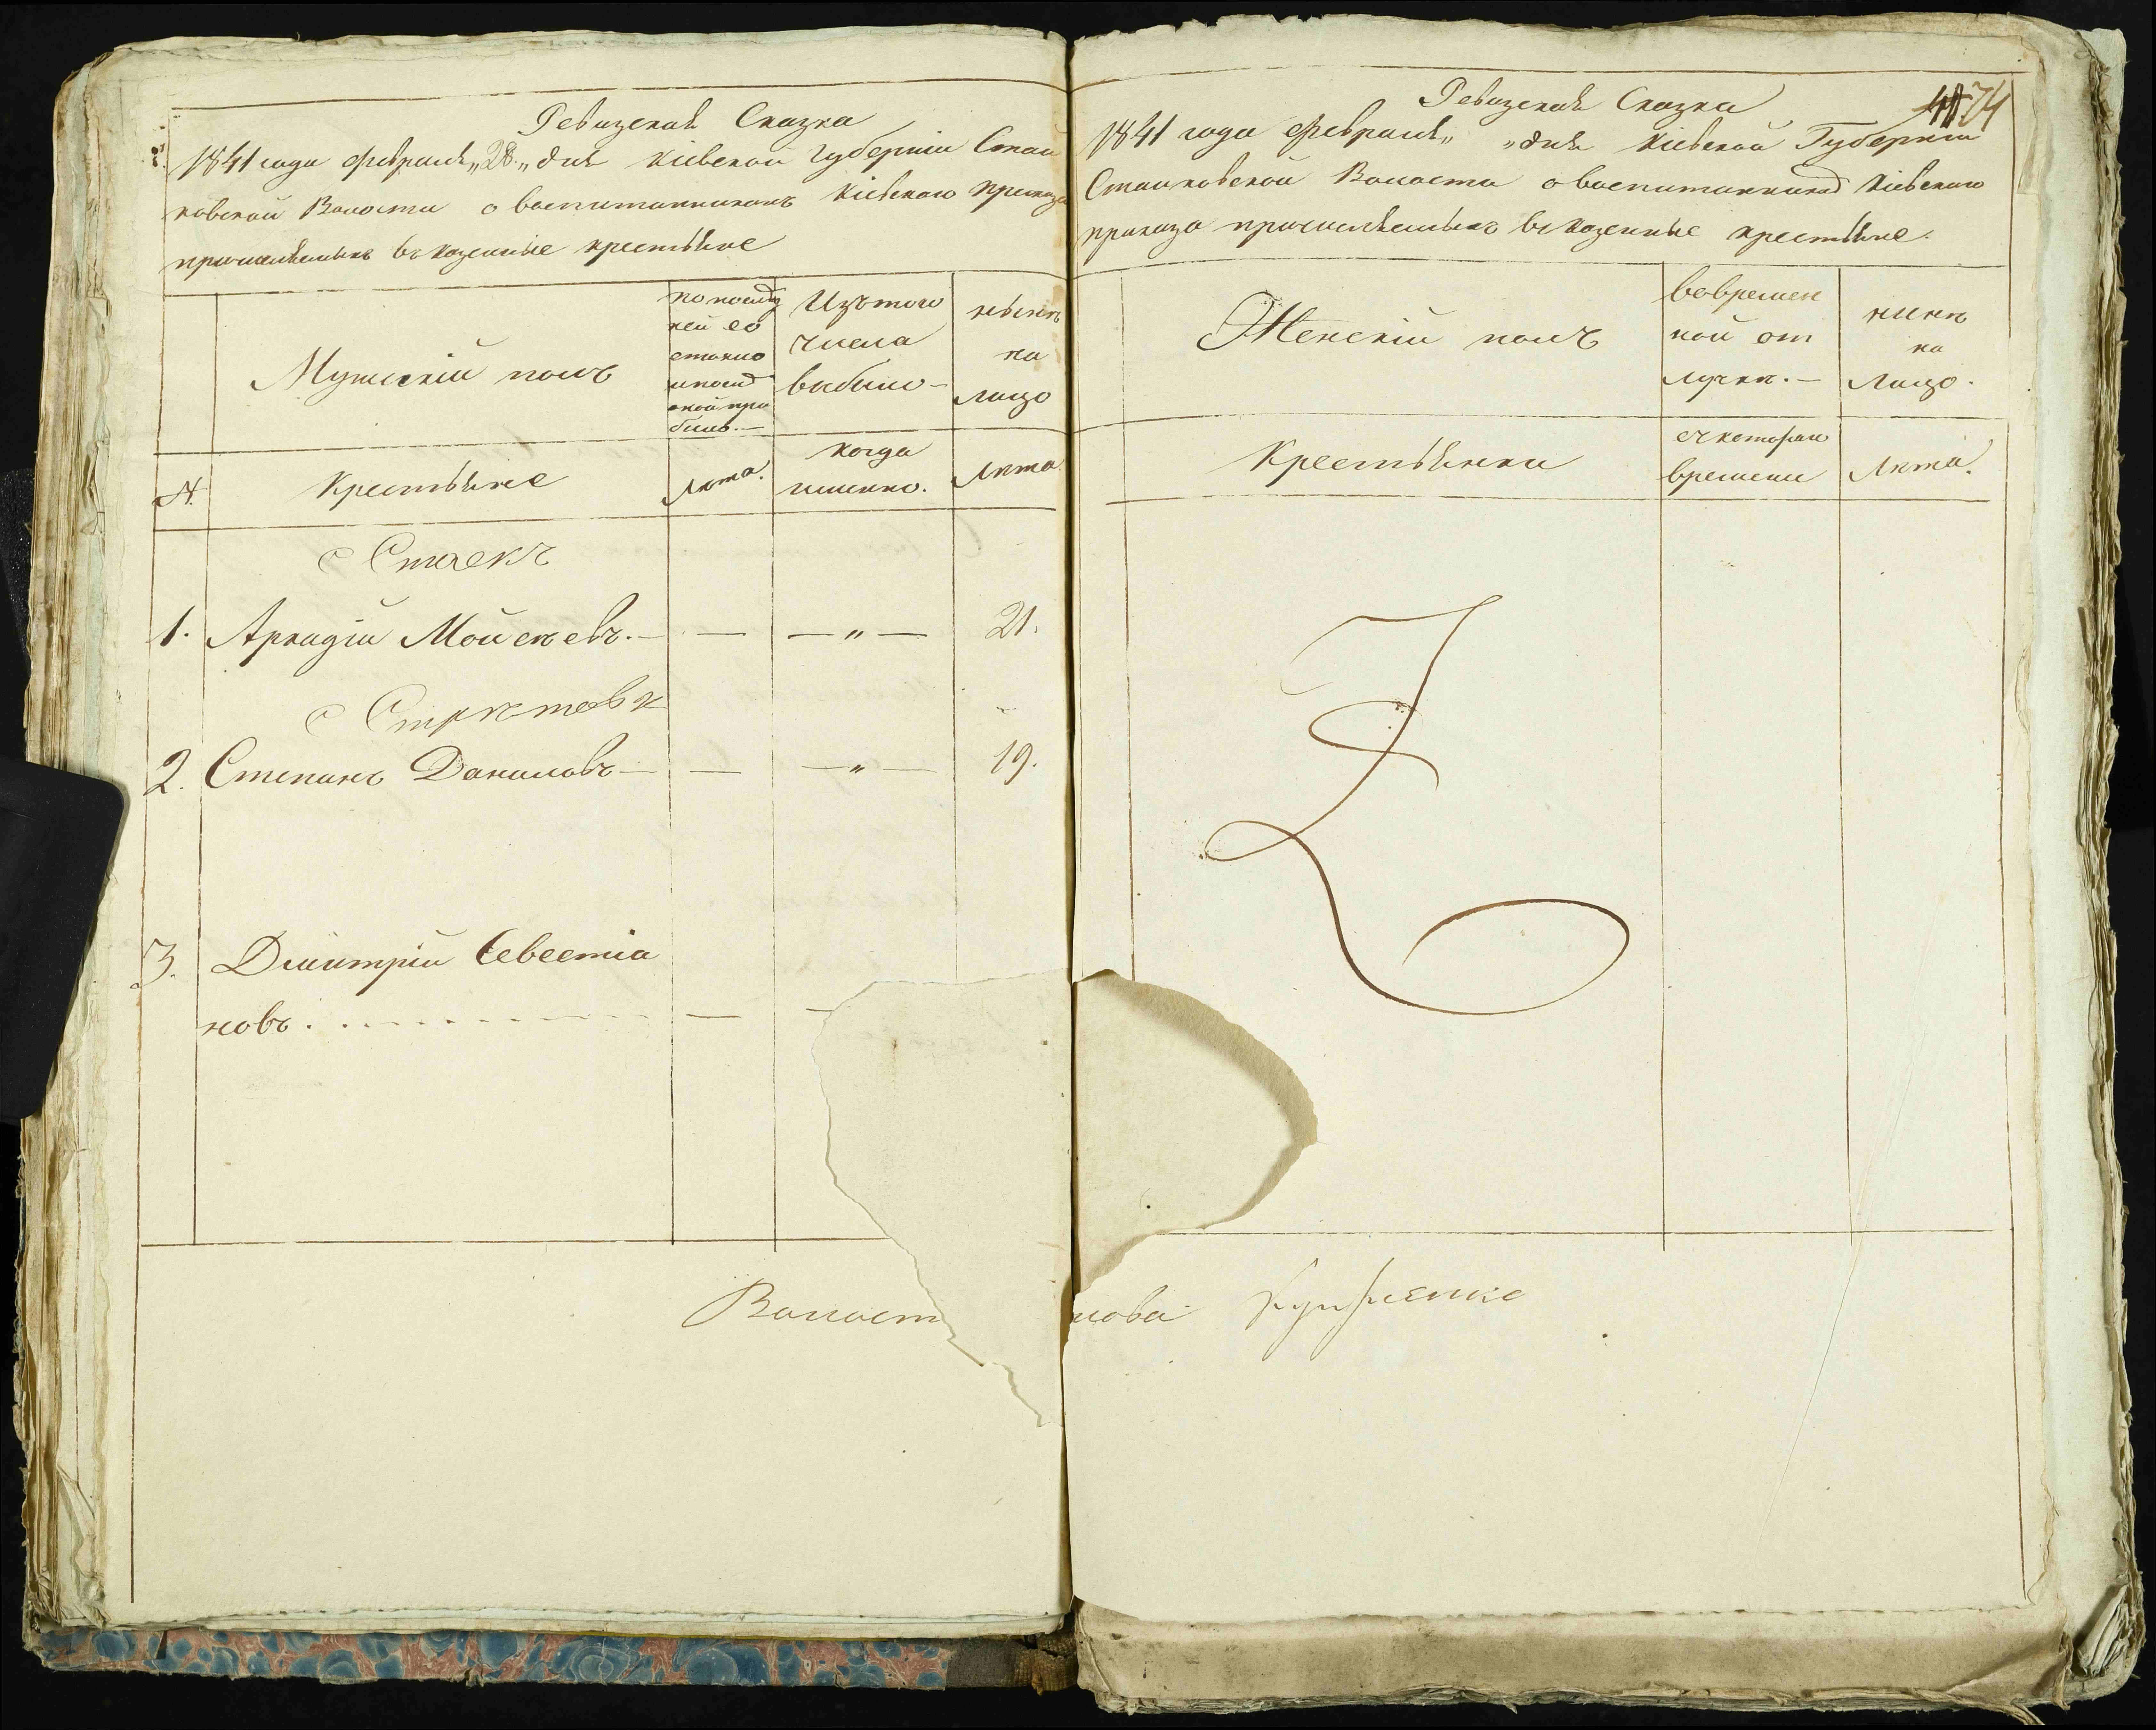 Ревизская Сказка
1841 года февраля „28„ дня Кіевской Губерніи Стай
ковской Волости о воспитанникахъ Кіевскаго Приказа
причисляемыхъ въ казенные крестьяне
Мужескій полъ
по послѣд
ней ре
Изъ того
числа
выбыло
нынѣ
на
лицо
№
Крестьяне
Лѣта.
когда
именно.
Лѣта
с Стаекъ
1. Аркадій Мойсеевъ. — — — „ — 21.
с Стрѣтовки
2. Степанъ Даниловъ — — — „ — 19.
3. Дмитрій Севестіа
новъ. — —
Волост
74
Ревизская Сказка
1841 года февраля „ „ дня Кіевской Губерніи
Стайковской Волости о воспитанникахъ Кіевскаго
приказа причисляемыхъ въ казенные крестьяне.
Женскій полъ
во времен
ной от
лучкѣ. —
нынѣ
на
лицо.
Крестьянки
съ котораго
времени
Лѣта.
лова